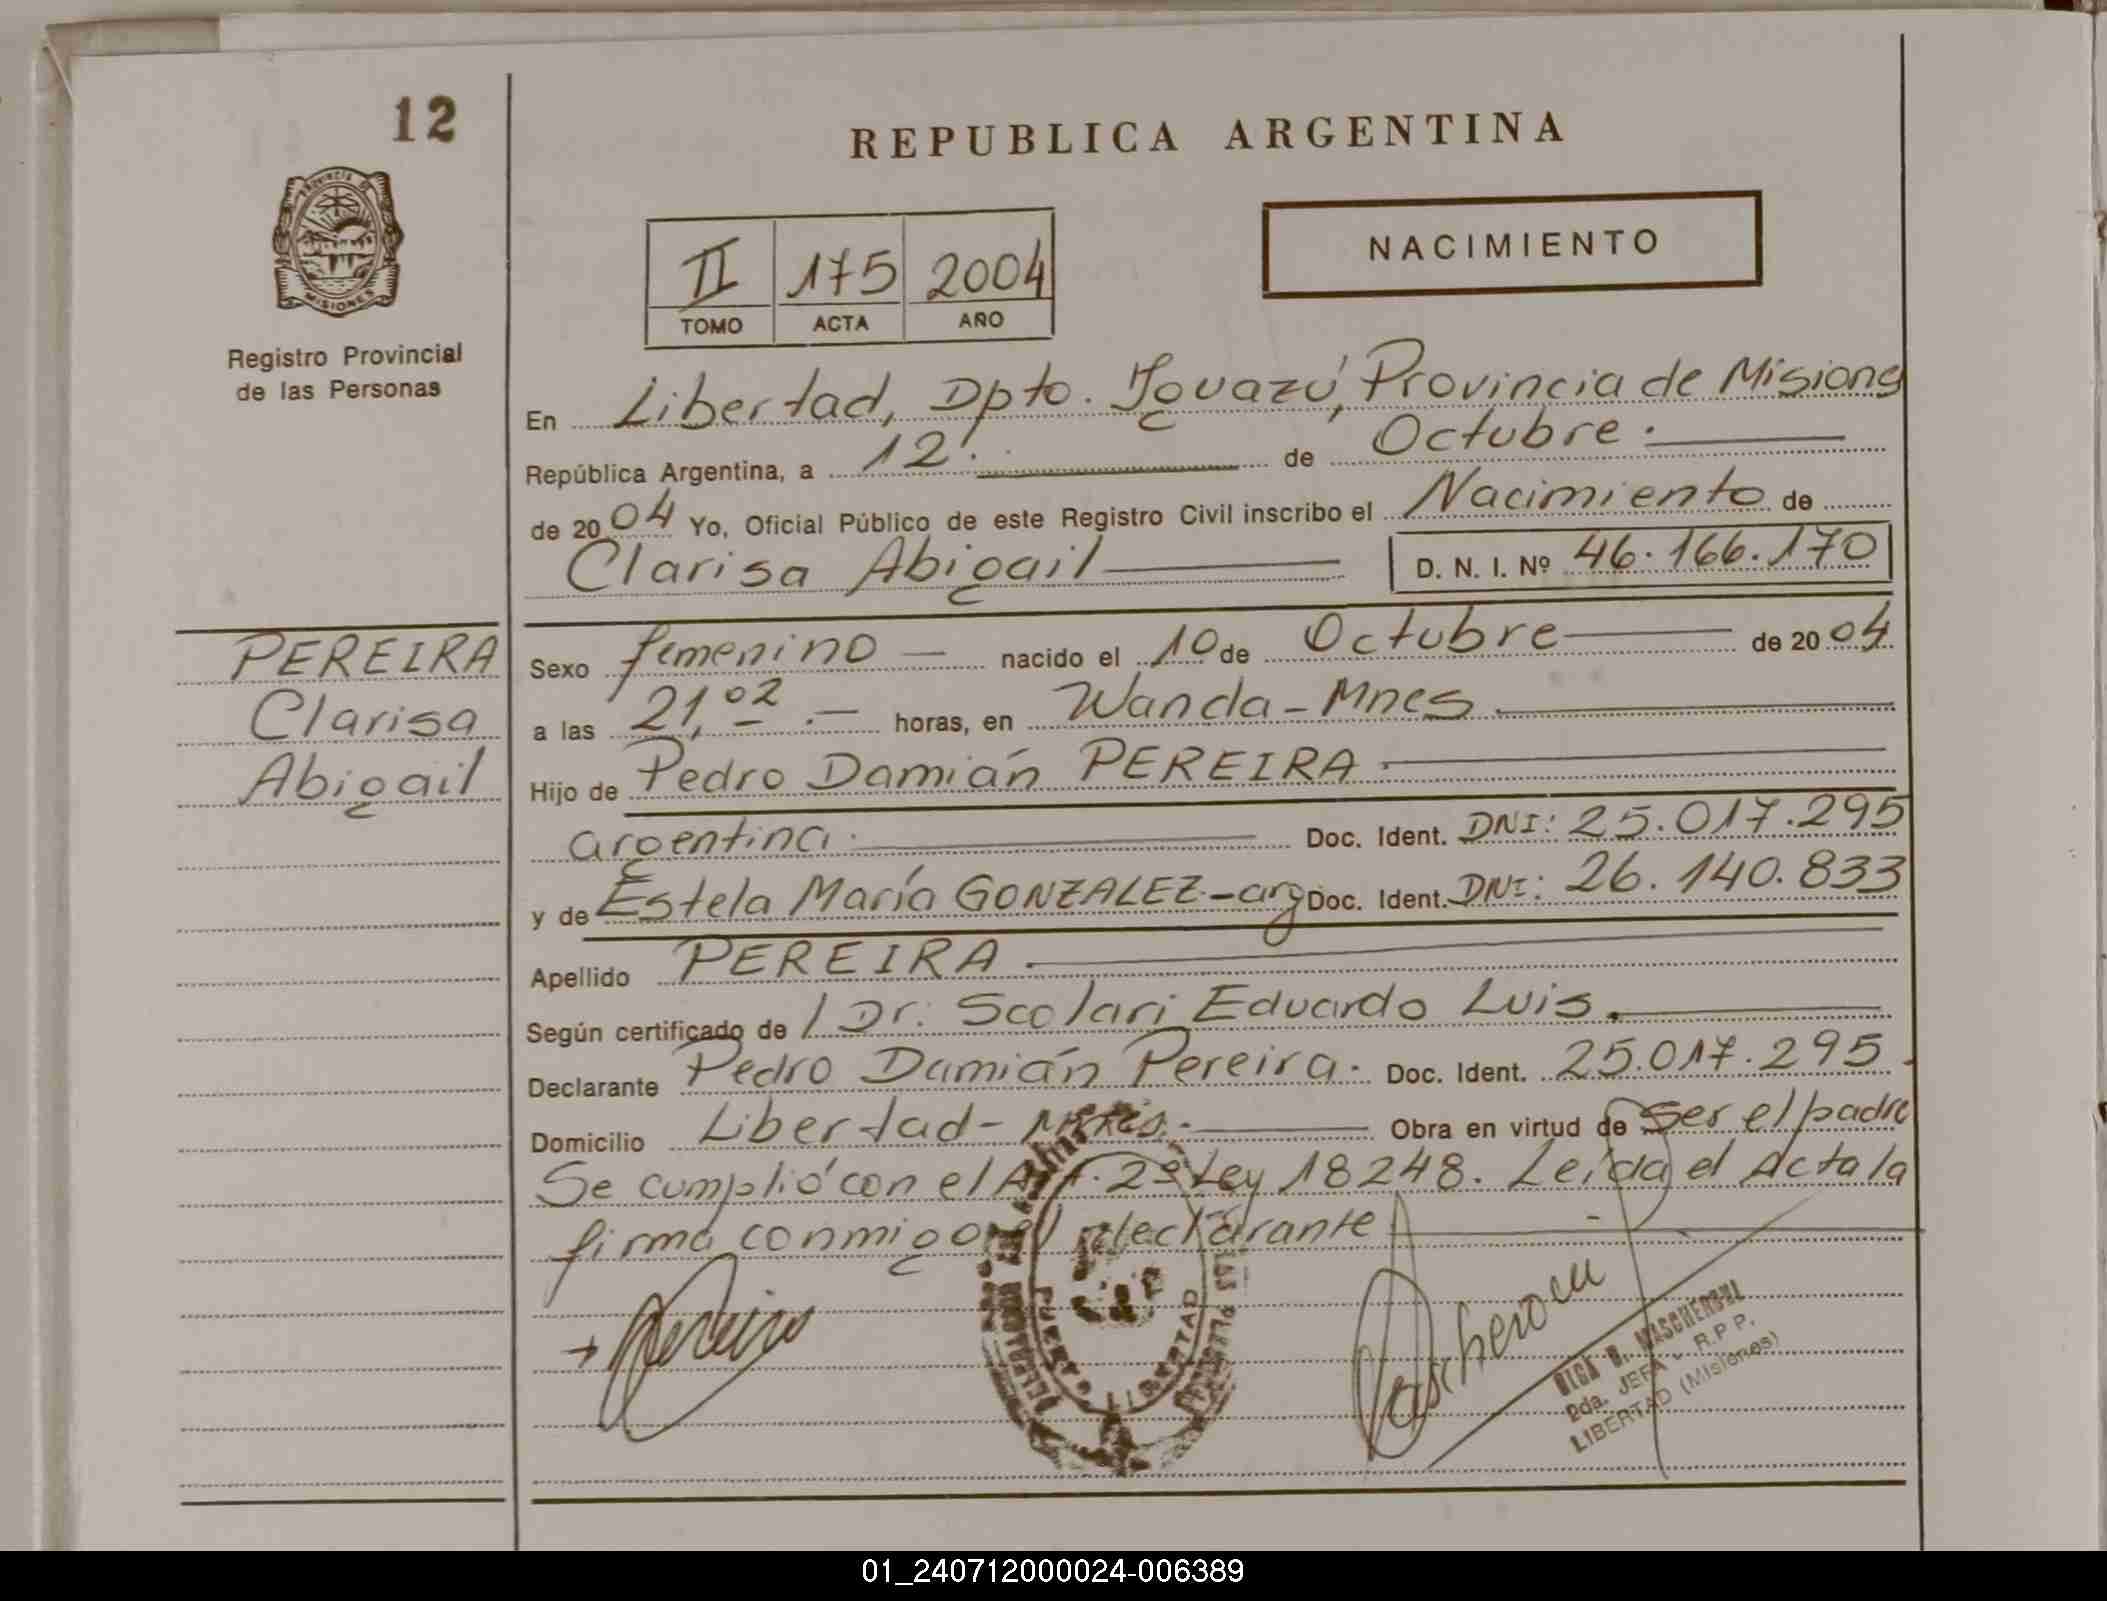 12
REPUBLICA ARGENTINA
PROVINCIA DE
MISIONES
Registro Provincial
de las Personas
II 175 2004
TOMO ACTA AÑO
NACIMIENTO
En Libertad, Dpto. Iguazú, Provincia de Misiones
República Argentina, a 12. de Octubre.
de 2004 Yo, Oficial Público de este Registro Civil inscribo el Nacimiento de
Clarisa Abigail D. N. I. Nº 46.166.170
PEREIRA
Clarisa
Abigail
Sexo femenino — nacido el 10 de Octubre de 2004
a las 21,02 .— horas, en Wanda - Mnes
Hijo de Pedro Damián PEREIRA
argentina. Doc. Ident. DNI: 25.017.295
y de Estela María GONZALEZ.-arg Doc. Ident. DNI: 26.140.833
Apellido PEREIRA
Según certificado de Dr. Scolari Eduardo Luis.
Declarante Pedro Damián Pereira. Doc. Ident. 25.017.295.
Domicilio Libertad - Mnes. Obra en virtud de Ser el padre
Se cumplió con el Art. 2º Ley 18248. Leída el Acta la
firma conmigo el declarante
Pereira
LIBERTAD
Mascheroni
OLGA B. MASCHERONI
2da. JEFA - R.P.P.
LIBERTAD (Misiones)
01_240712000024-006389